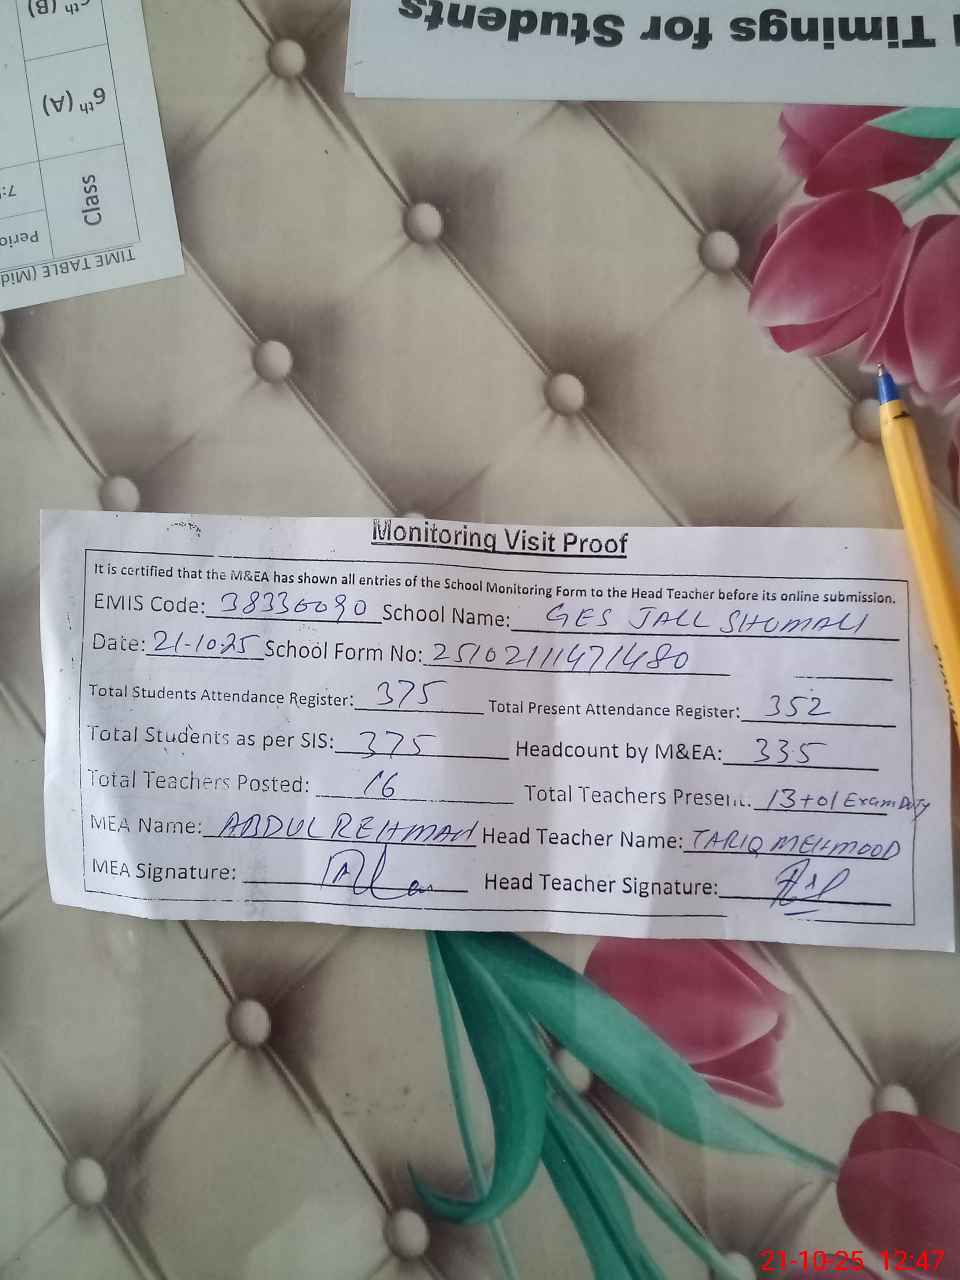 Timings for Students
th (B)
6th (A)
Class
7:
Perio
TIME TABLE (Mid
Monitoring Visit Proof
It is certified that the M&EA has shown all entries of the School Monitoring Form to the Head Teacher before its online submission.
EMIS Code: 38336090 School Name: GES JALL SHUMALI
Date: 21-10-25 School Form No: 25102111471480
Total Students Attendance Register: 375 Total Present Attendance Register: 352
Total Students as per SIS: 375 Headcount by M&EA: 335
Total Teachers Posted: 16 Total Teachers Present: 13+01 Exam Duty
MEA Name: ABDUL REHMAN Head Teacher Name: TARIQ MEHMOOD
MEA Signature: Head Teacher Signature:
21-10-25 12:47